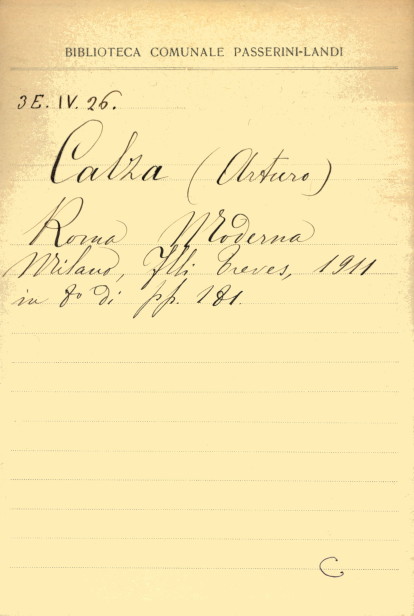 BIBLIOTECA COMUNALE PASSERINI-LANDI
3E. IV. 26.
Calza (Arturo)
Roma Moderna
Milano, Flli Treves, 1911
in 8º di pp. 181.
C